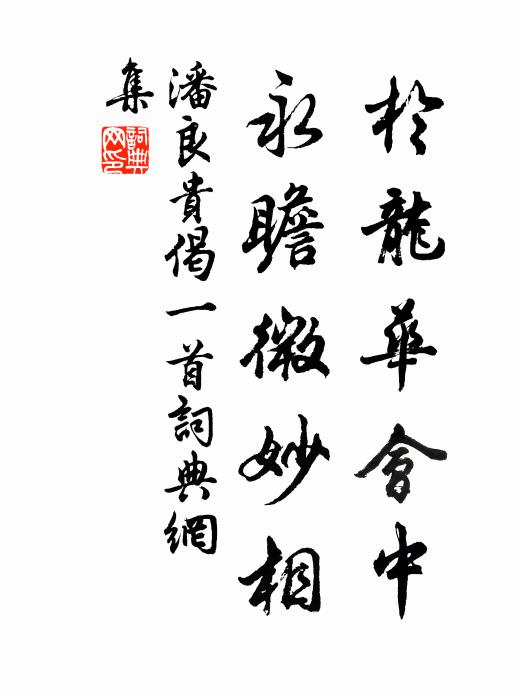 於龍華會中
永瞻微妙相
潘良貴偈一首詞典網
集
詞典網印